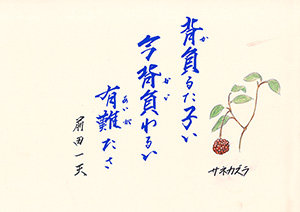 背負うた子に
今背負わるゝ
有難たさ
前田一天
サネカズラ